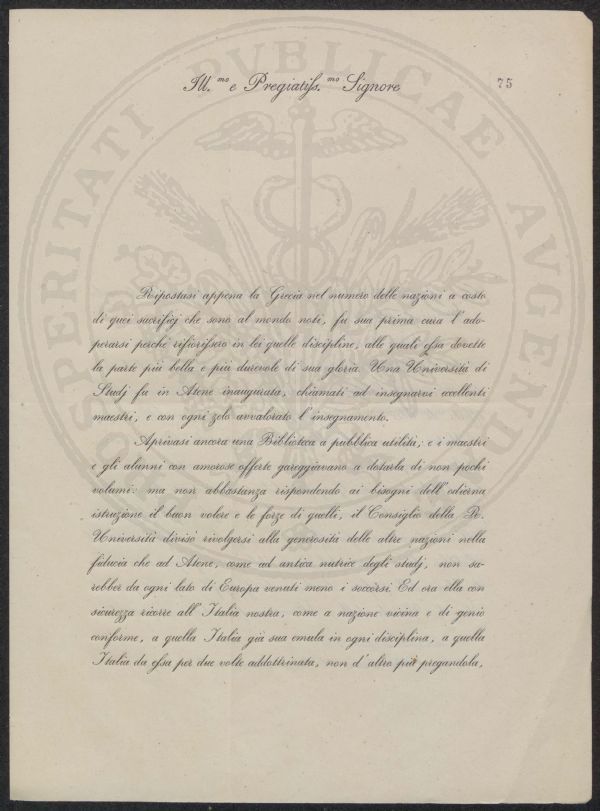 Ill.mo e Pregiatiſs.mo Signore
75
PROSPERITATI PVBLICAE AVGENDAE
Ripostasi appena la Grecia nel numero delle nazioni a costo
di quei sacrifizj che sono al mondo noti, fu sua prima cura l'ado-
perarsi perchè rifiorissero in lei quelle discipline, alle quali eſsa dovette
la parte più bella e più durevole di sua gloria. Una Università di
Studj fu in Atene inaugurata, chiamati ad insegnarvi eccellenti
maestri, e con ogni zelo avvalorato l'insegnamento.
Aprivasi ancora una Biblioteca a pubblica utilità; e i maestri
e gli alunni con amorose offerte gareggiavano a dotarla di non pochi
volumi: ma non abbastanza rispondendo ai bisogni dell'odierna
istruzione il buon volere e le forze di quelli, il Consiglio della R.
Università divisò rivolgersi alla generosità delle altre nazioni nella
fiducia che ad Atene, come ad antica nutrice degli studj, non sa-
rebber da ogni lato di Europa venuti meno i soccorsi. Ed ora ella con
sicurezza ricorre all'Italia nostra, come a nazione vicina e di genio
conforme, a quella Italia già sua emula in ogni disciplina, a quella
Italia da eſsa per due volte addottrinata, non d'altro più pregandola,